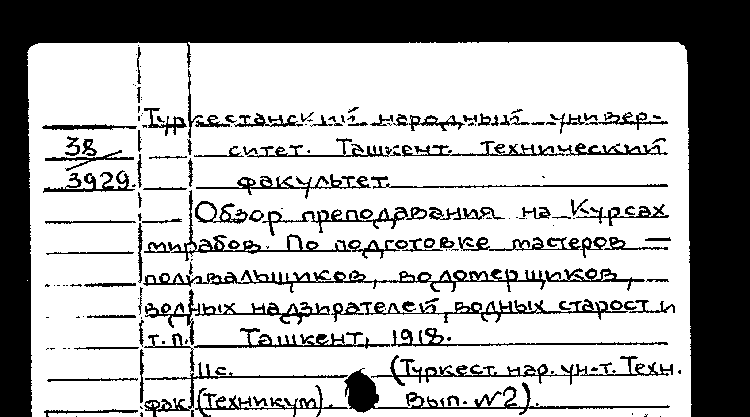 Туркестанский народный универ-
38 ситет. Ташкент. Технический
3929. факультет.
Обзор преподавания на Курсах
мирабов. По подготовке мастеров —
поливальщиков, водомерщиков,
водных надзирателей, водных старост и
т.п. Ташкент, 1918.
11с. (Туркест. нар. ун-т. Техн.
фак. (Техникум). Вып. №2).